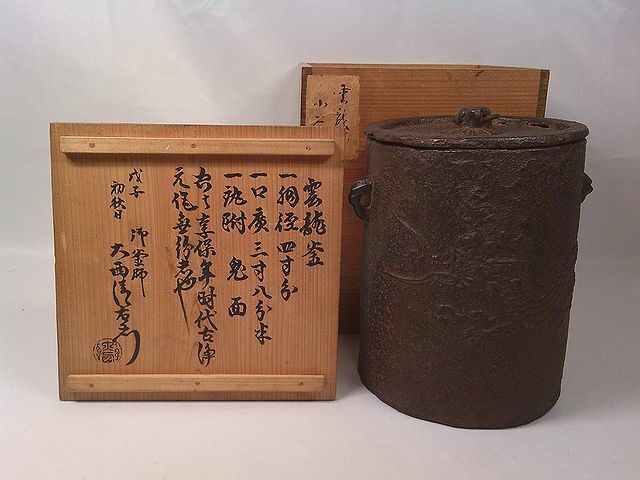 雲龍釜
一胴径 四寸分
一口廣 三寸八分半
一鐶附 鬼面
右者享保年時代古浄
元作無紛者也
戊子
初秋日
御釜師
大西清右衛門
雲龍
小